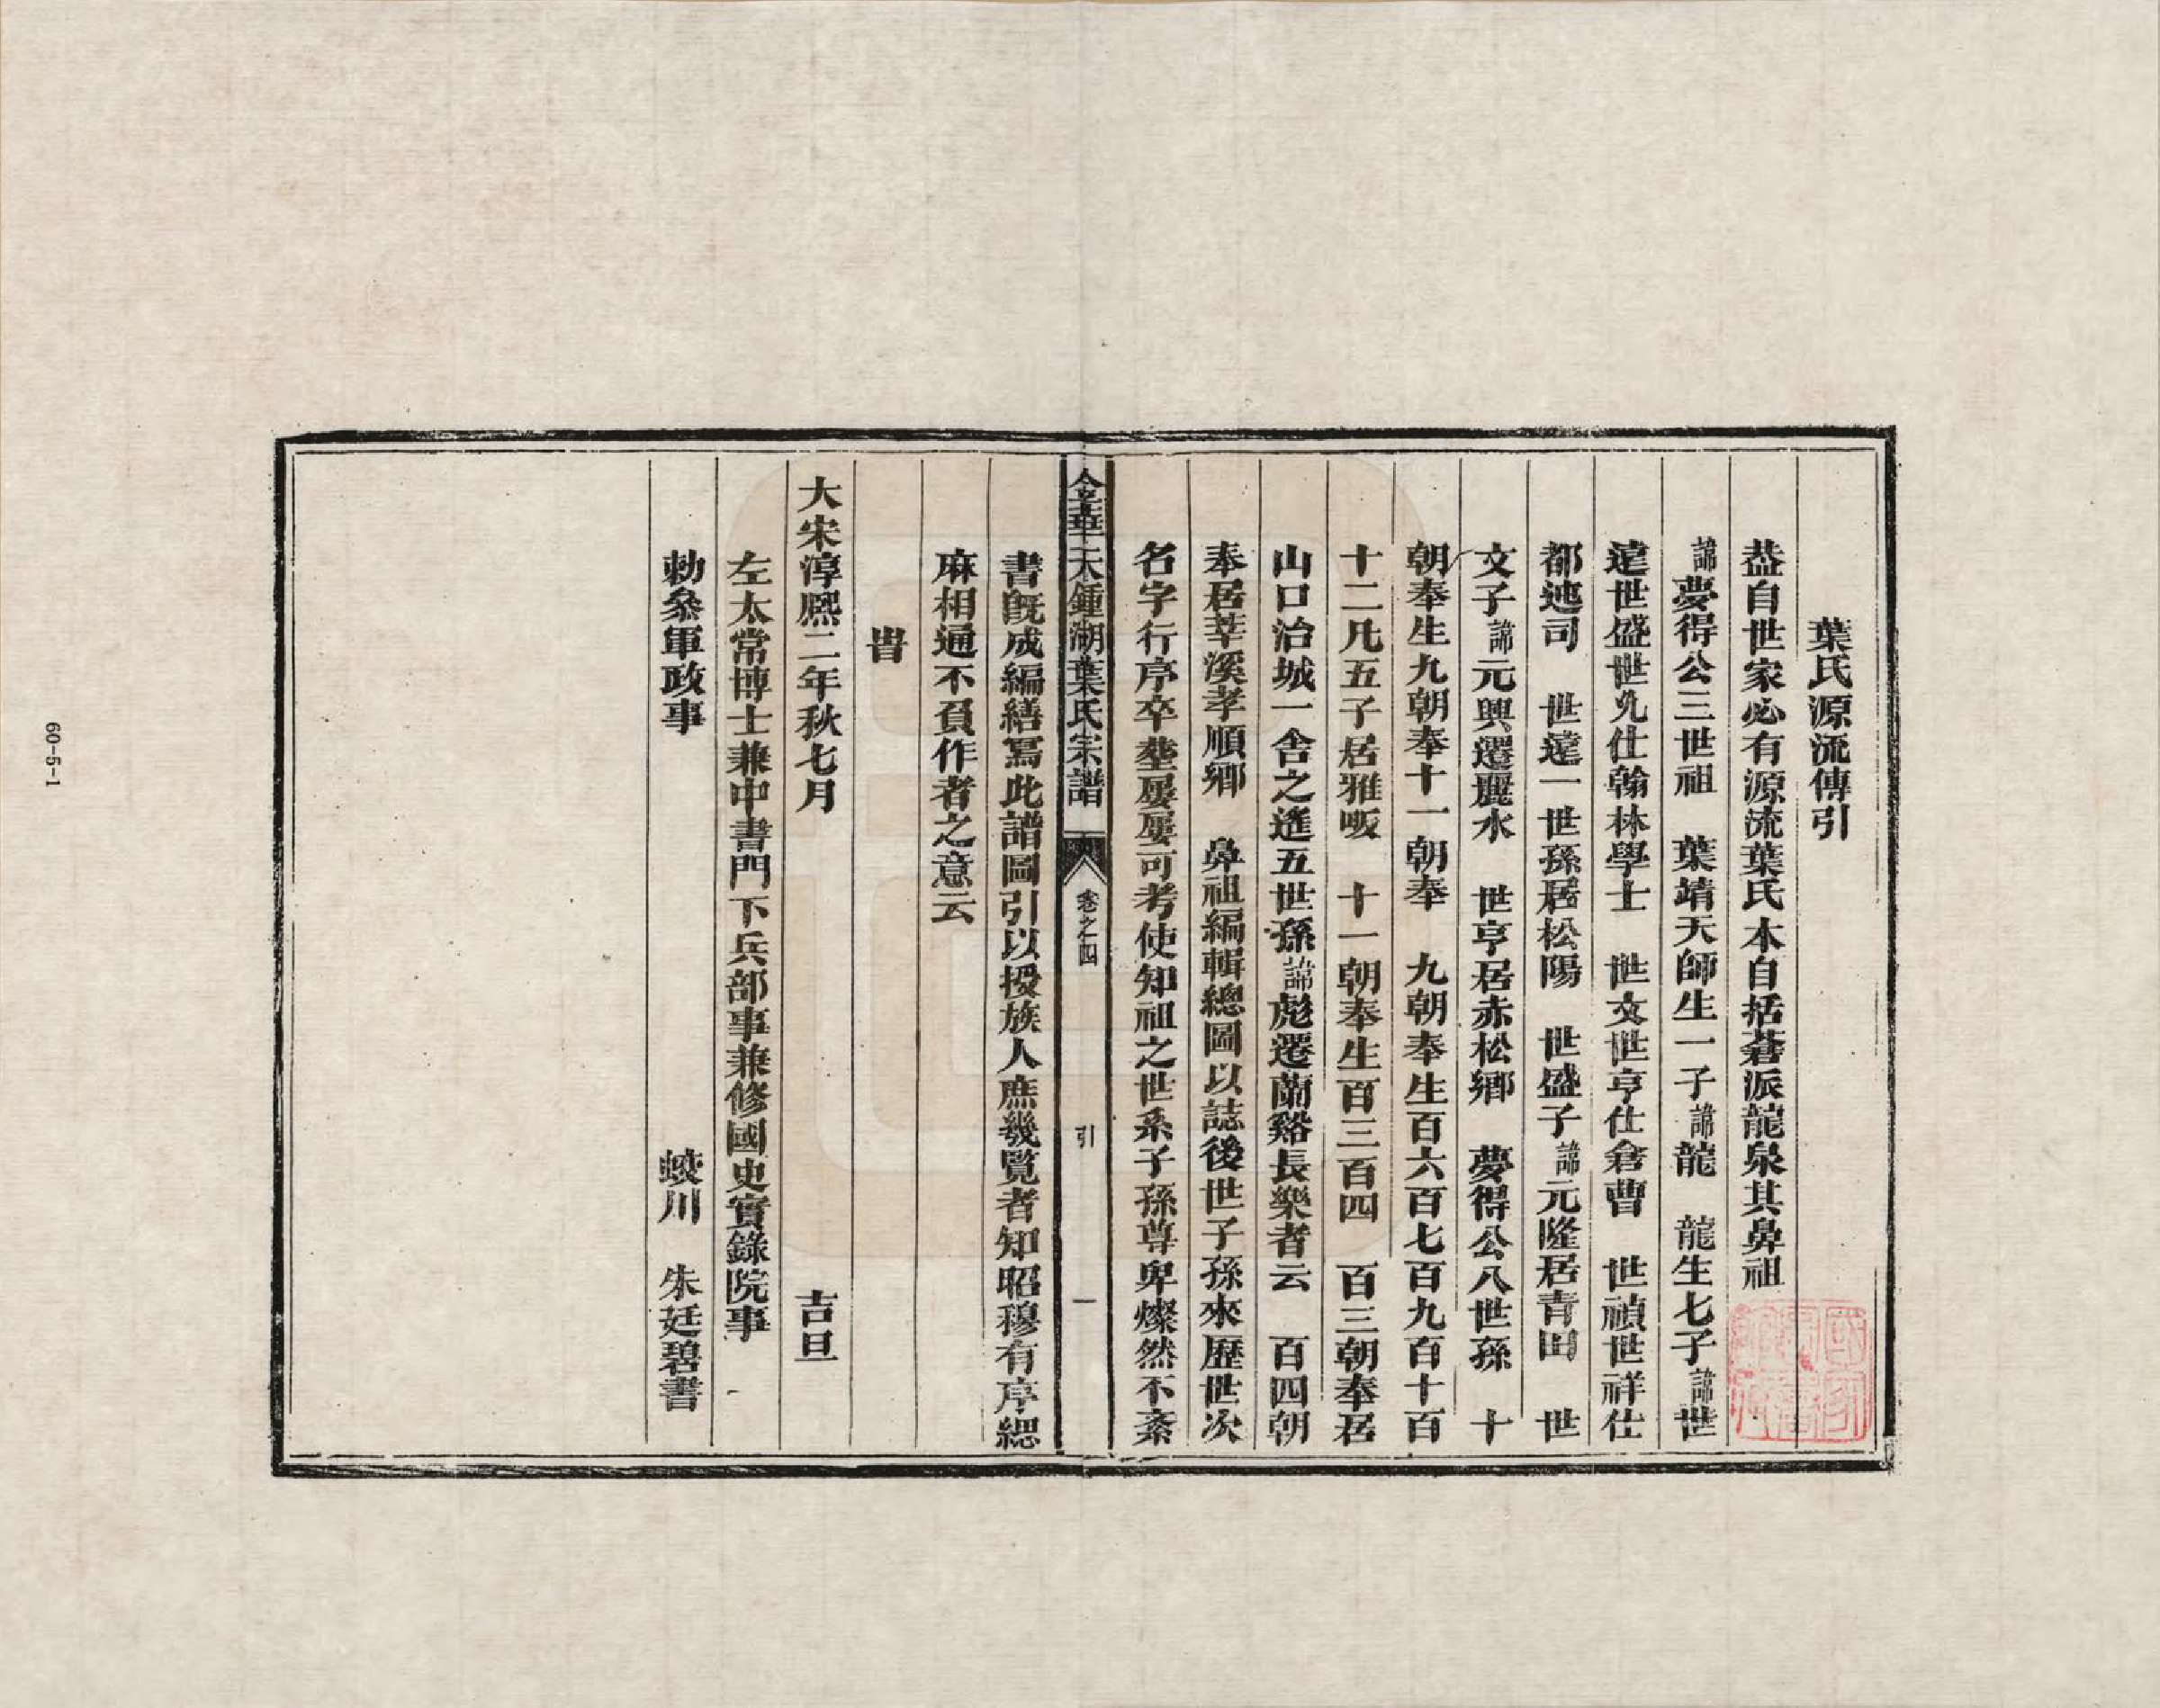 葉氏源流傳引
葢自世家必有源流葉氏本自括蒼派龍泉其鼻祖
諱夢得公三世祖　葉靖天師生一子諱龍　龍生七子諱世
遠世盛世允仕翰林學士　世文世亨仕倉曹　世禎世祥仕
都運司　世遠一世孫居松陽　世盛子諱元隆居青田　世
文子諱元興遷麗水　世亨居赤松鄉　夢得公八世孫　十
朝奉生九朝奉十一朝奉　九朝奉生百六百七百九百十百
十二凡五子居雅畈　十一朝奉生百三百四　百三朝奉居
山口治城一舍之遙五世孫諱彪遷蘭谿長樂者云　百四朝
奉居莘溪孝順鄉　鼻祖編輯總圖以誌後世子孫來歷世次
名字行序卒塟屢屢可考使知祖之世系子孫尊卑燦然不紊
金華天鍾湖葉氏宗譜　卷之四　引　一
書旣成編繕寫此譜圖引以授族人庶幾覽者知昭穆有序緦
麻相通不負作者之意云
旹
大宋淳熈二年秋七月　吉旦
左太常博士兼中書門下兵部事兼修國史實錄院事
勅叅軍政事　蛟川　朱廷碧書
60-5-1